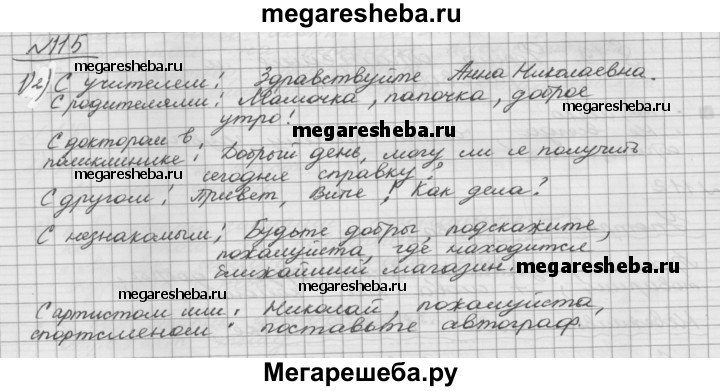 megaresheba.ru
№115
megaresheba.ru
1)2) С учителем: Здравствуйте Анна Николаевна.
С родителями: Мамочка, папочка, доброе
утро!
megaresheba.ru
С доктором в
поликлинике: Добрый день, могу ли я получить
сегодня справку?
С другом: Привет, Витя! Как дела?
С незнакомым: Будьте добры подскажите,
пожалуйста, где находится
ближайший магазин.
megaresheba.ru
megaresheba.ru
С артистом или: Николай, пожалуйста,
спортсменом: поставьте автограф.
Мегарешеба.ру